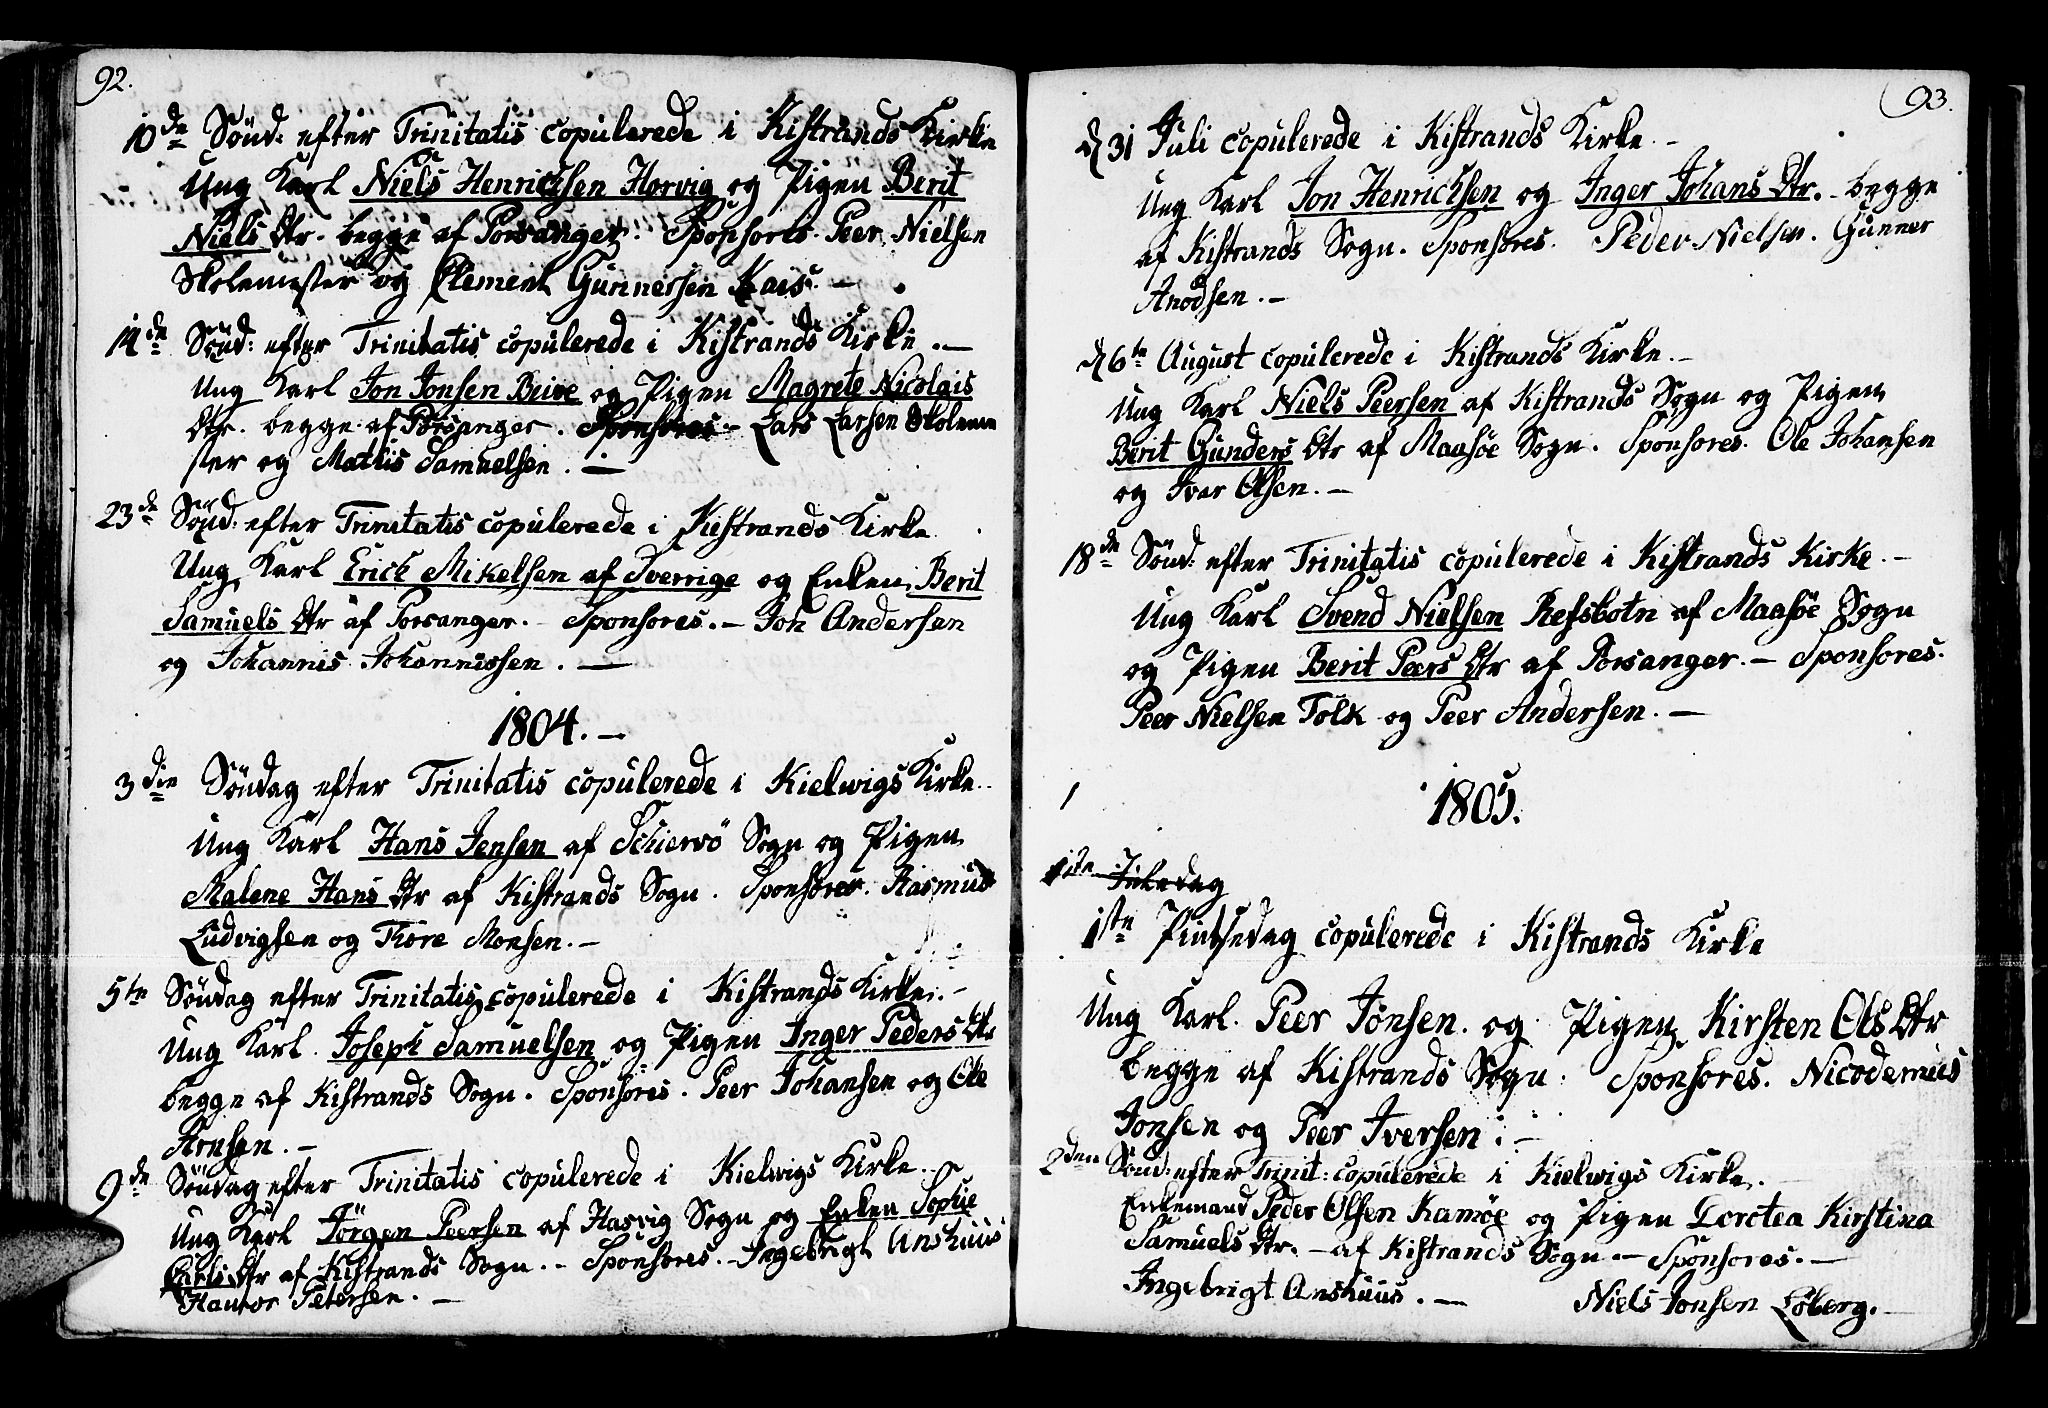 92.
10de Sönd: efter Trinitatis copulerede i Kistrands Kirke
Ung Karl Niels Henrichsen Horvig og Pigen Berit
Niels Dtr. begge af Porsanger. Sponsores. Peer Nielsen
Skolemester og Clement Gunnersen Kais. —
14de Sönd: efter Trinitatis copulerede i Kistrands Kirke. —
Ung Karl Jon Jonsen Beive og Pigen Magrete Nicolais
Dtr. begge af Porsanger. Sponsores - Lars Larsen Skoleme
ster og Mathis Samuelsen. —
23de Sönd: efter Trinitatis copulerede i Kistrands Kirke
Ung Karl Erich Mikelsen af Sverrige og Enken Berit
Samuels Dtr af Porsanger. - Sponsores. - Joh Andersen
og Johannis Johannissen. —
1804. —
3die Söndag efter Trinitatis copulerede i Kielwigs Kirke.
Ung Karl Hans Jensen af Schiervö Sogn og Pigen
Malene Hans Dtr af Kistrands Sogn. Sponsores. Rasmus
Ludvigsen og Thore Monsen. —
5te Söndag efter Trinitatis copulerede i Kistrands Kirke. -
Ung Karl Joseph Samuelsen og Pigen Inger Peders Dtr
begge af Kistrands Sogn. Sponsores. Peer Johansen og Ole
Aronsen. —
9de Söndag efter Trinitatis copulerede i Kielwigs Kirke.
Ung Karl Jörgen Peersen af Hasvig Sogn og Enken Sophie
Carls Dtr af Kistrands Sogn. - Sponsores. - Ingebrigt Anshuus
Petersen. —
93.
d 31 Juli copulerede i Kistrands Kirke. -
Ung Karl Jon Henrichsen og Inger Johans Dtr. begge
af Kistrands Sogn. Sponsores. Peder Nielsen. Gunner
Anodsen. —
d 6te August copulerede i Kistrands Kirke. -
Ung Karl Niels Peersen af Kistrands Sogn og Pigen
Berit Gunders Dtr af Maasöe Sogn. Sponsores. Ole Johansen
og Iver Olsen. —
18de Sönd: efter Trinitatis copulerede i Kistrands Kirke. -
Ung Karl Svend Nielsen Refsbotn af Maasöe Sogn
og Pigen Berit Peers Dtr af Porsanger. — Sponsores.
Peer Nielsen Tolk og Peer Andersen. —
1805.
1ste Juledag
1ste Pintsedag copulerede i Kistrands Kirke
Ung Karl. Peer Jonsen. og Pigen Kirsten Ols Dtr
begge af Kistrands Sogn. Sponsores. Nicodemus
Jonsen og Peer Iversen. —
2den Sönd: efter Trinit: copulerede i Kielwigs Kirke.
Enkemand Peder Olsen Kamöe og Pigen Dorotea Kirstina
Samuels Dtr. - af Kistrands Sogn - Sponsores. —
Ingebrigt Anshuus. — Niels Jonsen Löberg. -